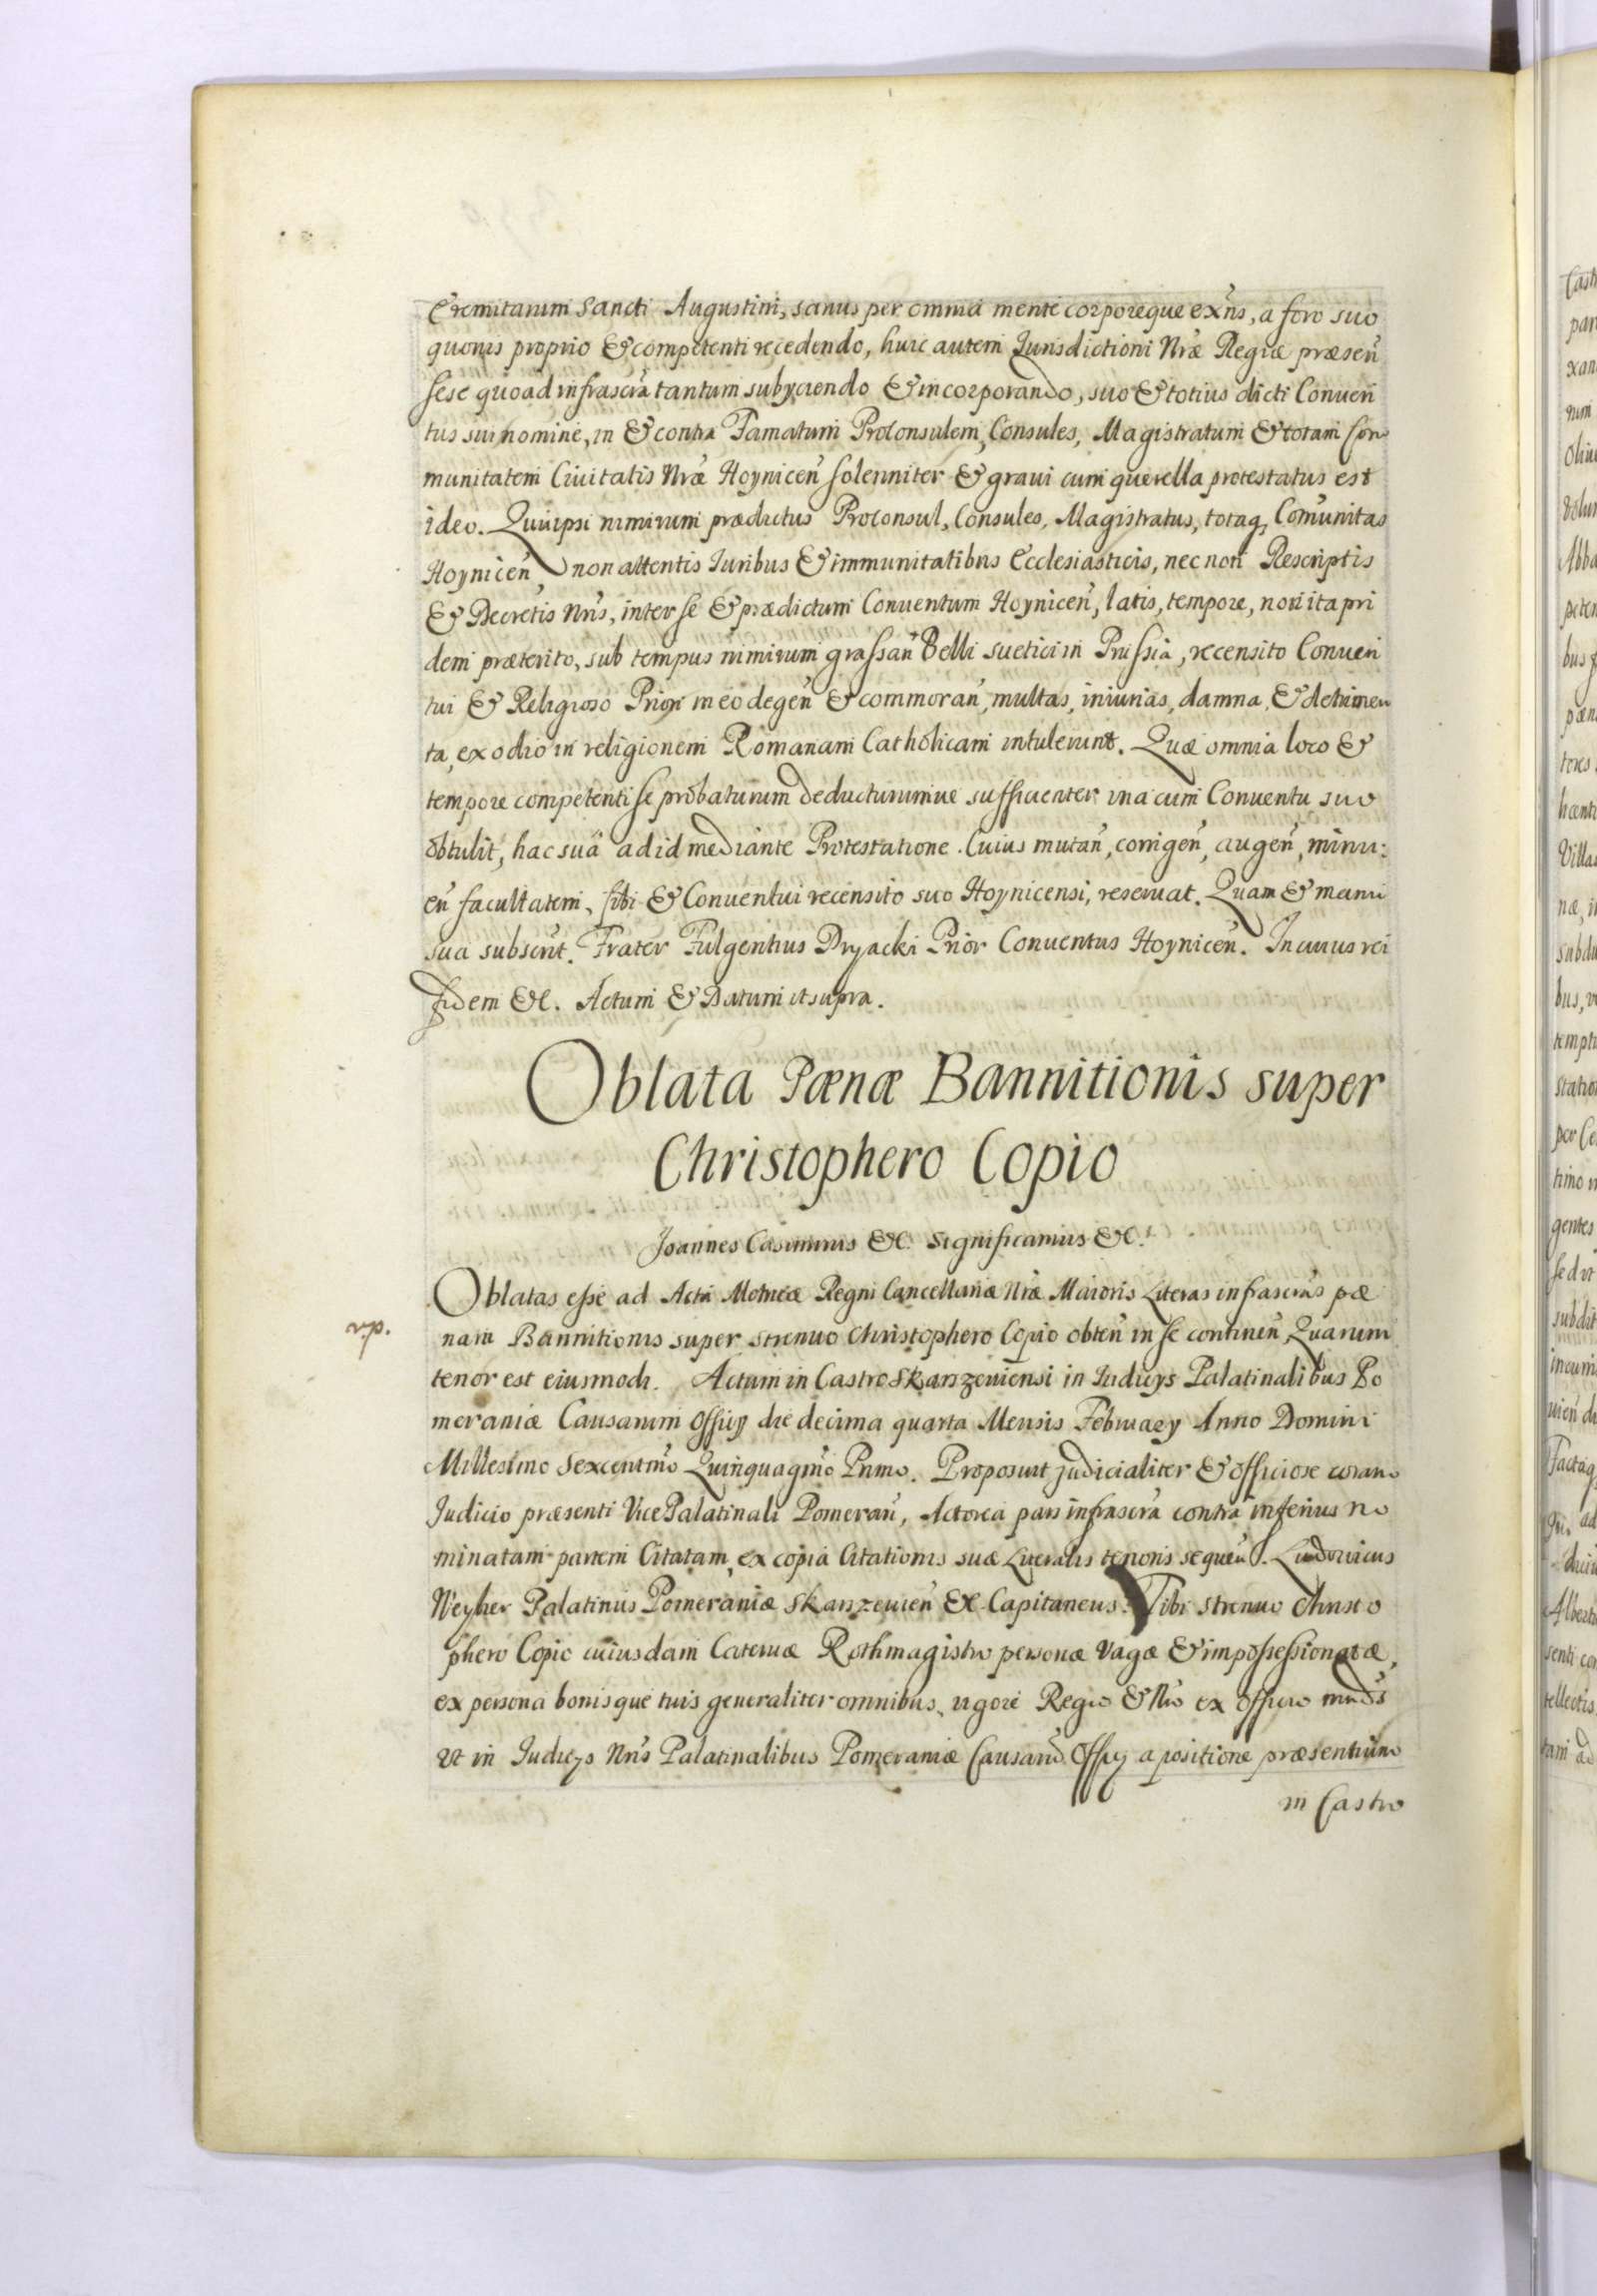 Eremitarum Sancti Augustini, sanus per omnia mente corporeque exn̄s, a foro suo
quouis proprio & competenti recedendo, huic autem Jurisdictioni Nr̄æ Regiæ præsen̄
sese quoad infrascr̄a tantum subijciendo & incorporando, suo & totius dicti Conuen
tus sui nomine, in & contra Famatum Proconsulem, Consules, Magistratum & totam Com
munitatem Ciuitatis Nr̄æ Hoynicen̄ solenniter & graui cum querella protestatus est
ideo. Quia ipsi nimirum prædictus Proconsul, Consules, Magistratus, totaq, Com̄unitas
Hoynicen̄, non attentis Iuribus & immunitatibus Ecclesiasticis, nec non Rescriptis
& Decretis Nr̄is, inter se & prædictum Conuentum Hoynicen̄, latis, tempore, non ita pri
dem præterito, sub tempus nimirum grassan̄ Belli suetici in Prussia, recensito Conuen
tui & Religioso Priori in eo degen̄ & commoran̄, multas, iniurias, damna, & detrimen
ta, ex odio in religionem Romanam Catholicam intulerunt. Quæ omnia loco &
tempore competenti se probaturum deducturumue sufficienter una cum Conuentu suo
obtulit, hac sua ad id mediante Protestatione. Cuius mutan̄, corrigen̄, augen̄, minu:
en̄ facultatem, sibi & Conuentui recensito suo Hoynicensi, reseruat. Quam & manu
sua subscr̄t. Frater Fulgentius Dryacki Prior Conuentus Hoynicen̄. In cuius rei
fidem &c. Actum & Datum ut supra.
Oblata Pænæ Bannitionis super
Christophero Copio
Joannes Casimirus &c. Significamus &c.
Oblatas esse ad Acta Metricæ Regni Cancellariæ Nr̄æ Maioris Literas infrascr̄as pæ
rp.
nam Bannitionis super strenuo Christophero Copio obten̄ in se continen̄, Quarum
tenor est eiusmodi. Actum in Castro Skarszeuiensi in Judicijs Palatinalibus Po
meraniæ Causarum Officij die decima quarta Mensis February Anno Domini
Millesimo Sexcentmo̅ Quinquagmo̅ Primo. Proposuit judicialiter & officiose coram
Judicio præsenti Vice Palatinali Pomeran̄, Actorea pars infrascr̄a contra inferius no
minatam partem Citatam, ex copia Citationis suæ Literalis tenoris sequen̄. Ludouicus
Weyher Palatinus Pomeraniæ Skarszeuien̄ &c. Capitaneus. Tibi strenuo Christo
phero Copio cuiusdam Cateruæ Rothmagistro personæ vagæ & impossessionatæ,
ex persona bonisque tuis generaliter omnibus, rigore Regio & Nr̄o ex officio mn̄ds
ut in Judicijs Nr̄is Palatinalibus Pomeraniæ Causarū Officij a positione præsentium
in Castro